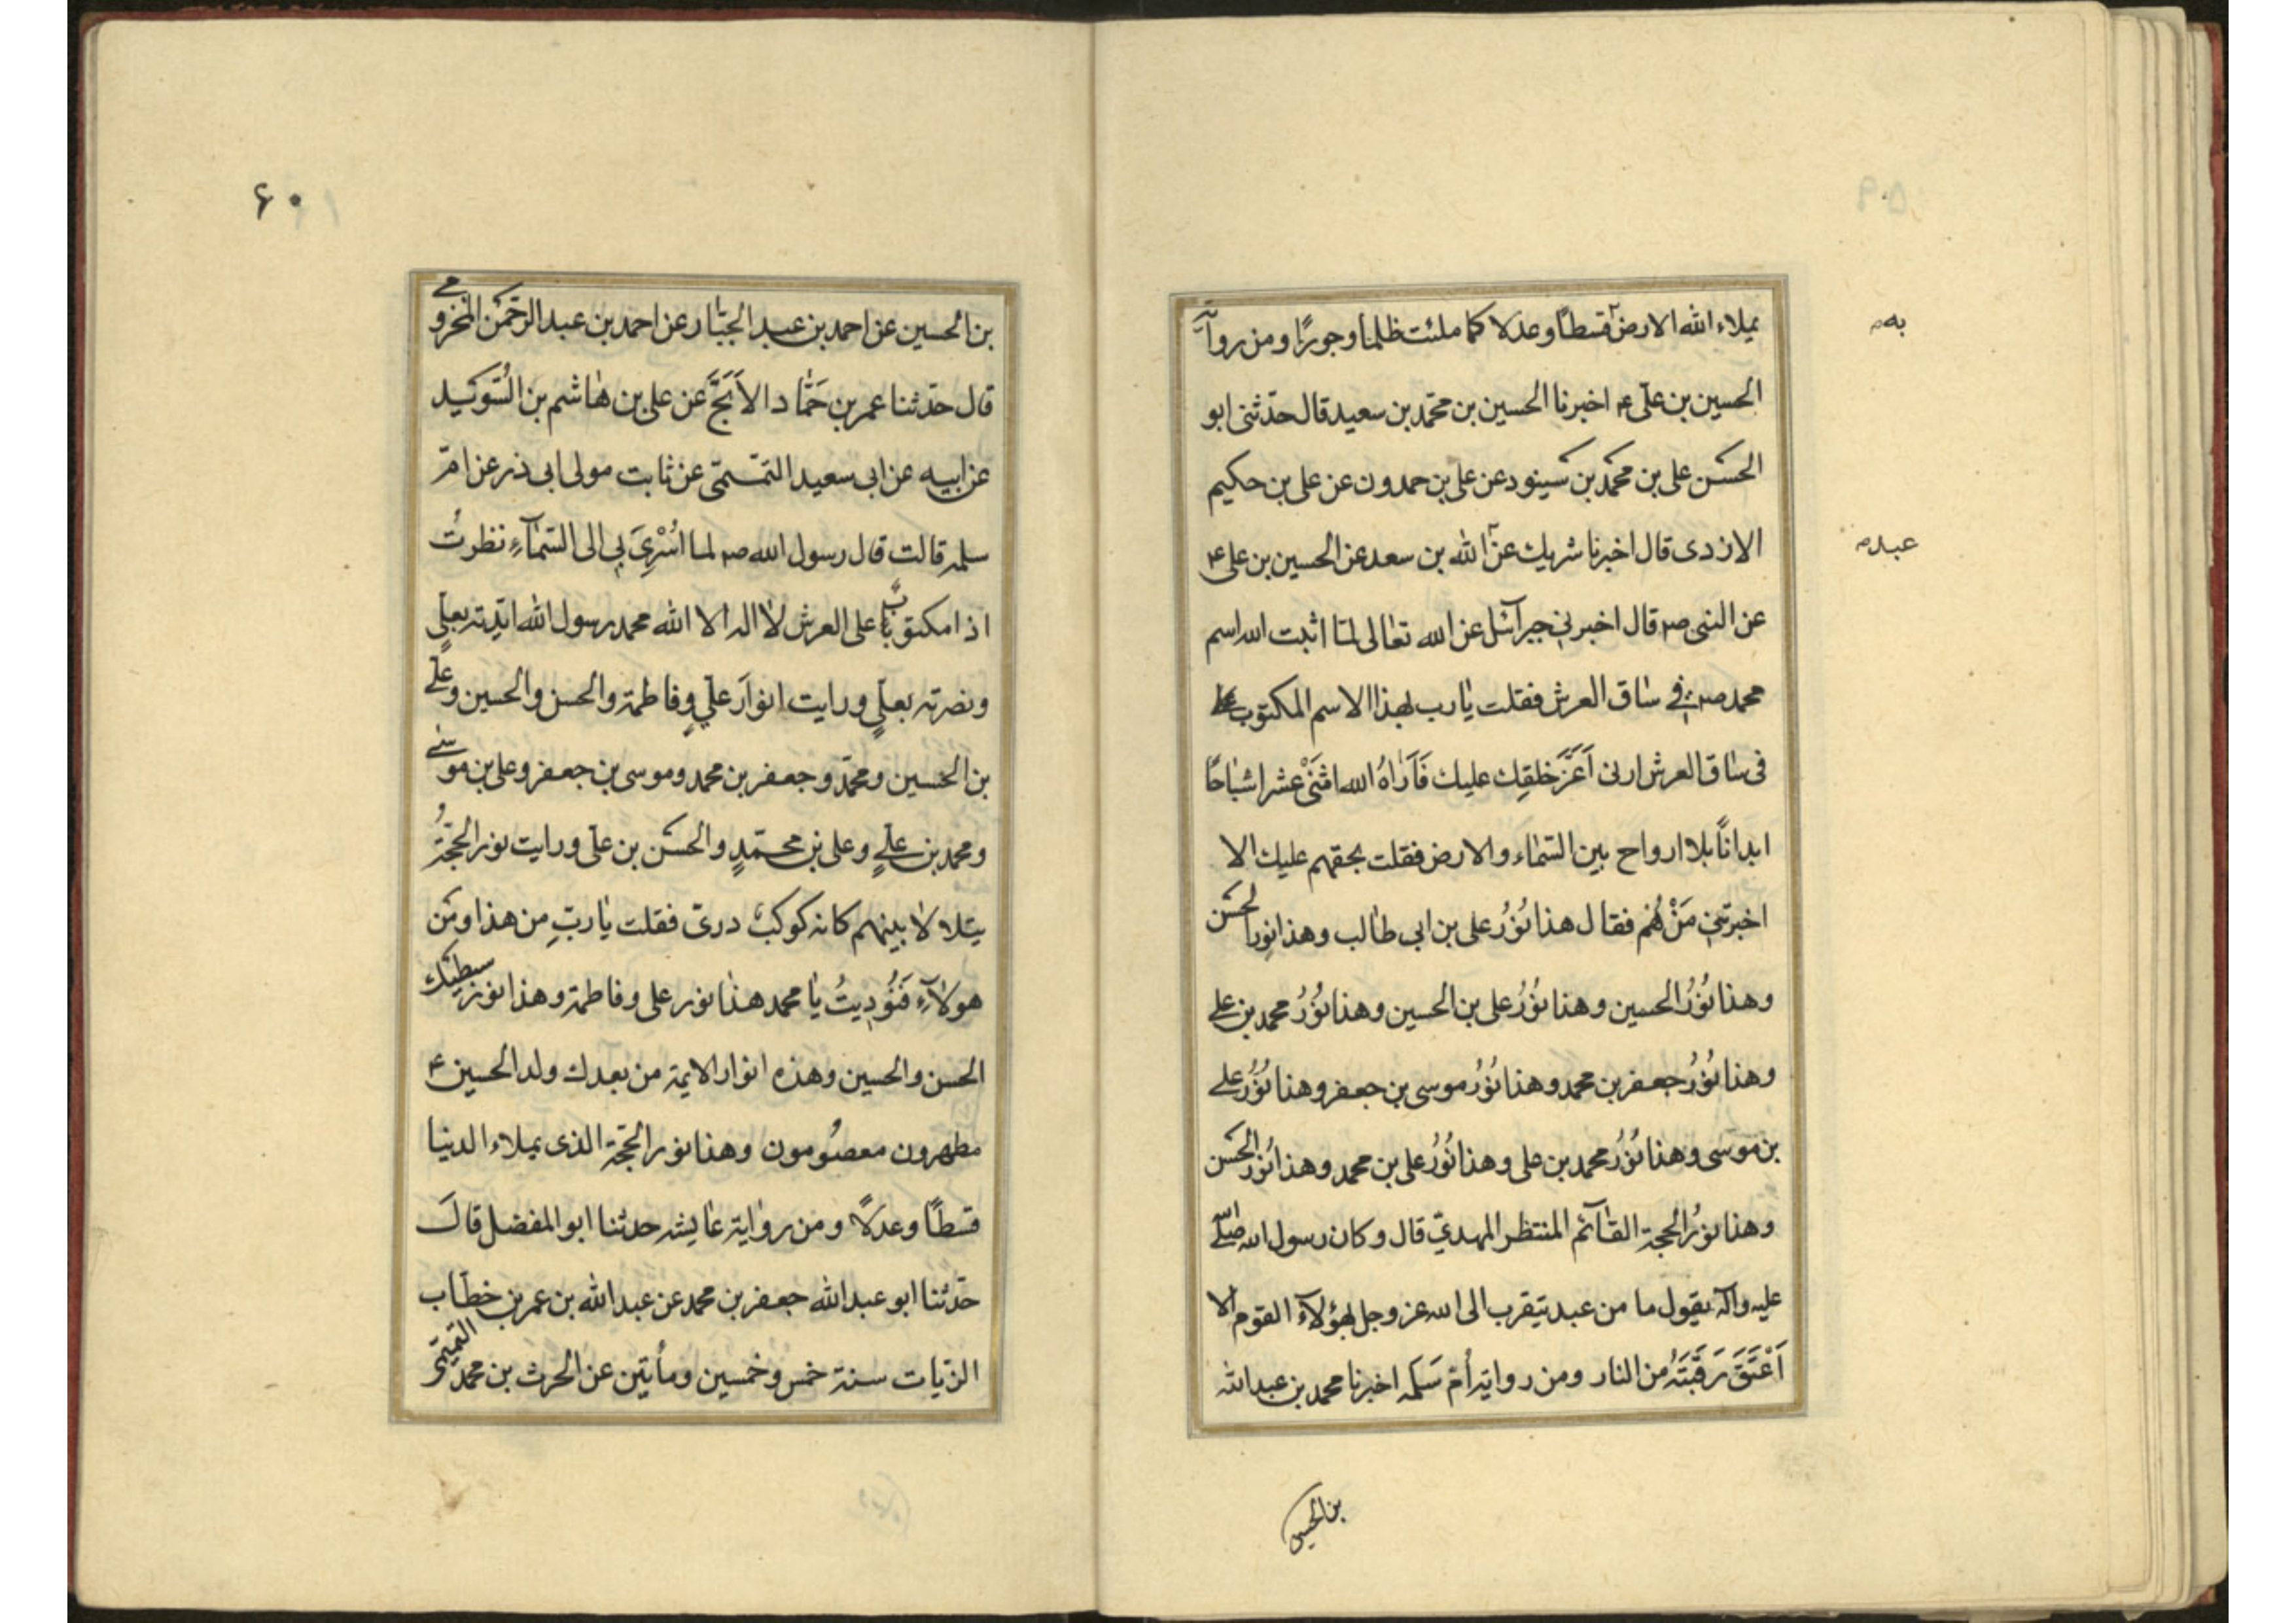 به
يملاء الله الارض قسطا وعدلا كما ملئت ظلما وجورًا ومن رواية
الحسين بن علي ع اخبرنا الحسين بن محمّد بن سعيد قال حدّثنى ابو
الحسن على بن محمد بن سينود عن على بن حمدون عن على بن حكيم
عبد
الازدى قال اخبرنا شريك عن الله بن سعد عن الحسين بن على ع
عن النبى ص قال اخبرني جبرآئيل عن الله تعالى لمّا اثبت الله اسم
محمد ص في ساق العرش فقلت يارب لهذا الاسم المكتوب
فى ساق العرش ارنى اَعَزَّ خلقِك عليك فَاَراهُ الله اثنَىْ عشر اشباحًا
ابدانًا بلا ارواح بين السّماء والارض فقلت بحقهم عليك الا
اخبرتنى مَنْ هُم فقال هذا نُورُ على بن ابي طالب وهذا نور الحسن
وهذا نُورُ الحسين وهذا نُورُ على بن الحسين وهذا نُورُ محمد بن على
وهذا نُورُ جعفر بن محمد وهذا نُورُ موسى بن جعفر وهذا نُورُ على
بن موسى وهذا نُورُ محمد بن على وهذا نُورُ على بن محمد وهذا نُورُ الحسن
وهذا نورُ الحجة القآئم المنتظر المهديّ قال وكان رسول الله صلى الله
عليه واله يقول ما من عبد يتقرب الى الله عز وجل بهؤلآء القوم الا
اَعْتَقَ رَقَبَتَهُ من النار ومن رواية أمّ سَلَمه اخبرنا محمد بن عبد الله
بن الحسين
۶۰
بن الحسين عن احمد بن عبد الجبّار عن احمد بن عبد الرّحمن المخزومي
قال حدّثنا عمر بن حَمّاد الاَبَجَّ عن على بن هاشم بن
عن ابيه عن ابى سعيد عن ثابت مولى ابى ذر عن امّ
سلمه قالت قال رسول الله ص لما اُسْرِىَ بى الى السّمآءِ نظرتُ
اذا مكتوبًا على العرش لا اله الا الله محمد رسول الله ايّدته بعليٍ
ونصرته بعليٍ ورايت انوارَ عليٍ وفاطمة والحسن والحسين وعلى
بن الحسين ومحمّد وجعفر بن محمد وموسى بن جعفر وعلى بن موسى
ومحمد بن عليٍ وعلى بن محمّدٍ والحسن بن علىّ ورايت نور الحجّةُ
يتلالا بينهم كانه كوكبٌ درىّ فقلت يا ربّ من هذا ومن
هولآءِ فَنُودِيتُ يا محمد هذا نور على وفاطمة وهذا نور سبطيك
الحسن والحسين وهذه انوار الايمة من بعدك ولد الحسين ع
مطهرون معصُومون وهذا نور الحجّة الذى يملاء الدنيا
قسطًا وعدلًا ومن رواية عايشه حدثنا ابو المفضل قالَ
حدّثنا ابو عبد الله جعفر بن محمد عن عبد الله بن عمر بن خطاب
الزيات سنة خمس وخمسين ومأتين عن الحرث بن محمد التميمى